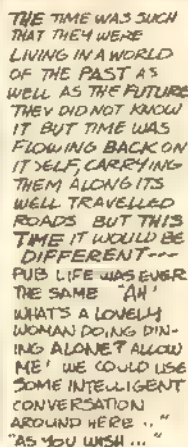 THE TIME WAS SUCH
THAT THEY WERE
LIVING IN A WORLD
OF THE PAST AS
WELL AS THE FUTURE
THEY DID NOT KNOW
IT BUT TIME WAS
FLOWING BACK ON
ITSELF, CARRYING
THEM ALONG ITS
WELL TRAVELLED
ROADS BUT THIS
TIME IT WOULD BE
DIFFERENT---
PUB LIFE WAS EVER
THE SAME "AH'
WHAT'S A LOVELY
WOMAN DOING DIN-
ING ALONE? ALLOW
ME! WE COULD USE
SOME INTELLIGENT
CONVERSATION
AROUND HERE .."
"AS YOU WISH ... "